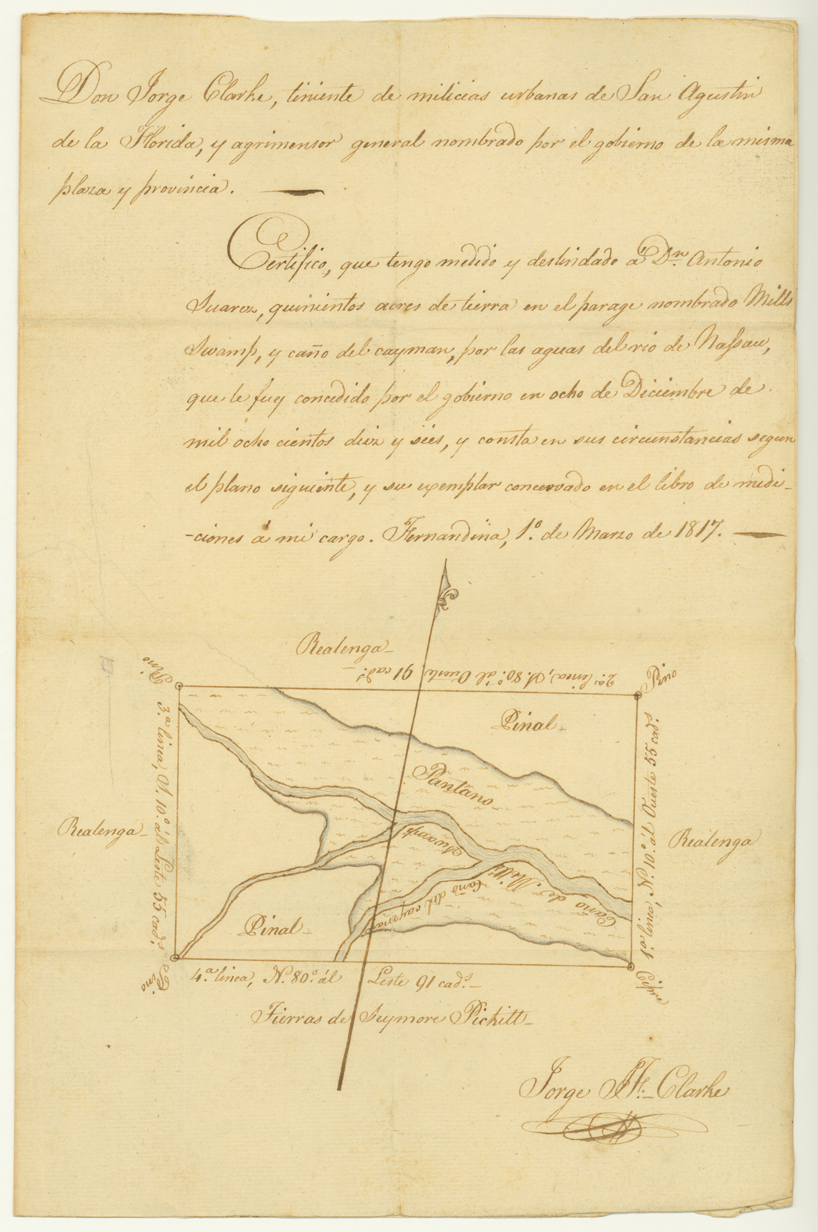 Don Jorge Clarke, tiniente de milicias urbanas de San Agustin
de la Florida, y agrimensor general nombrado por el gobierno de la misma
plaza y provincia.
Certifico, que tengo medido y deslindado á Dn. Antonio
Suarez, quinientos acres de tierra en el parage nombrado Mills
Swamp, y caño del cayman, por las aguas del rio de Nassau,
que le fuy concedido por el gobierno en ocho de Diciembre de
mil ocho cientos diez y siés, y consta en sus circunstancias segun
el plano siguiente, y su exemplar concervado en el libro de medi-
-ciones á mi cargo. Fernandina, 1º. de Marzo de 1817.
Realenga
2ª. linea, S. 80º. al Oueste 91 cads.
Pino
Pino
Pinal
3.ª linea, S. 10º. al Leste 55 cads.
Pantano
1ª. linea, N. 10º. al Oueste 55 cads.
Realenga
Realenga
Caño de Mills Swamp
Caño del cayman
Pinal
Pino
4.ª linea, N. 80º. ál Leste 91 cads.
Tierras de Seymore Pickitt
Jorge J. F. Clarke